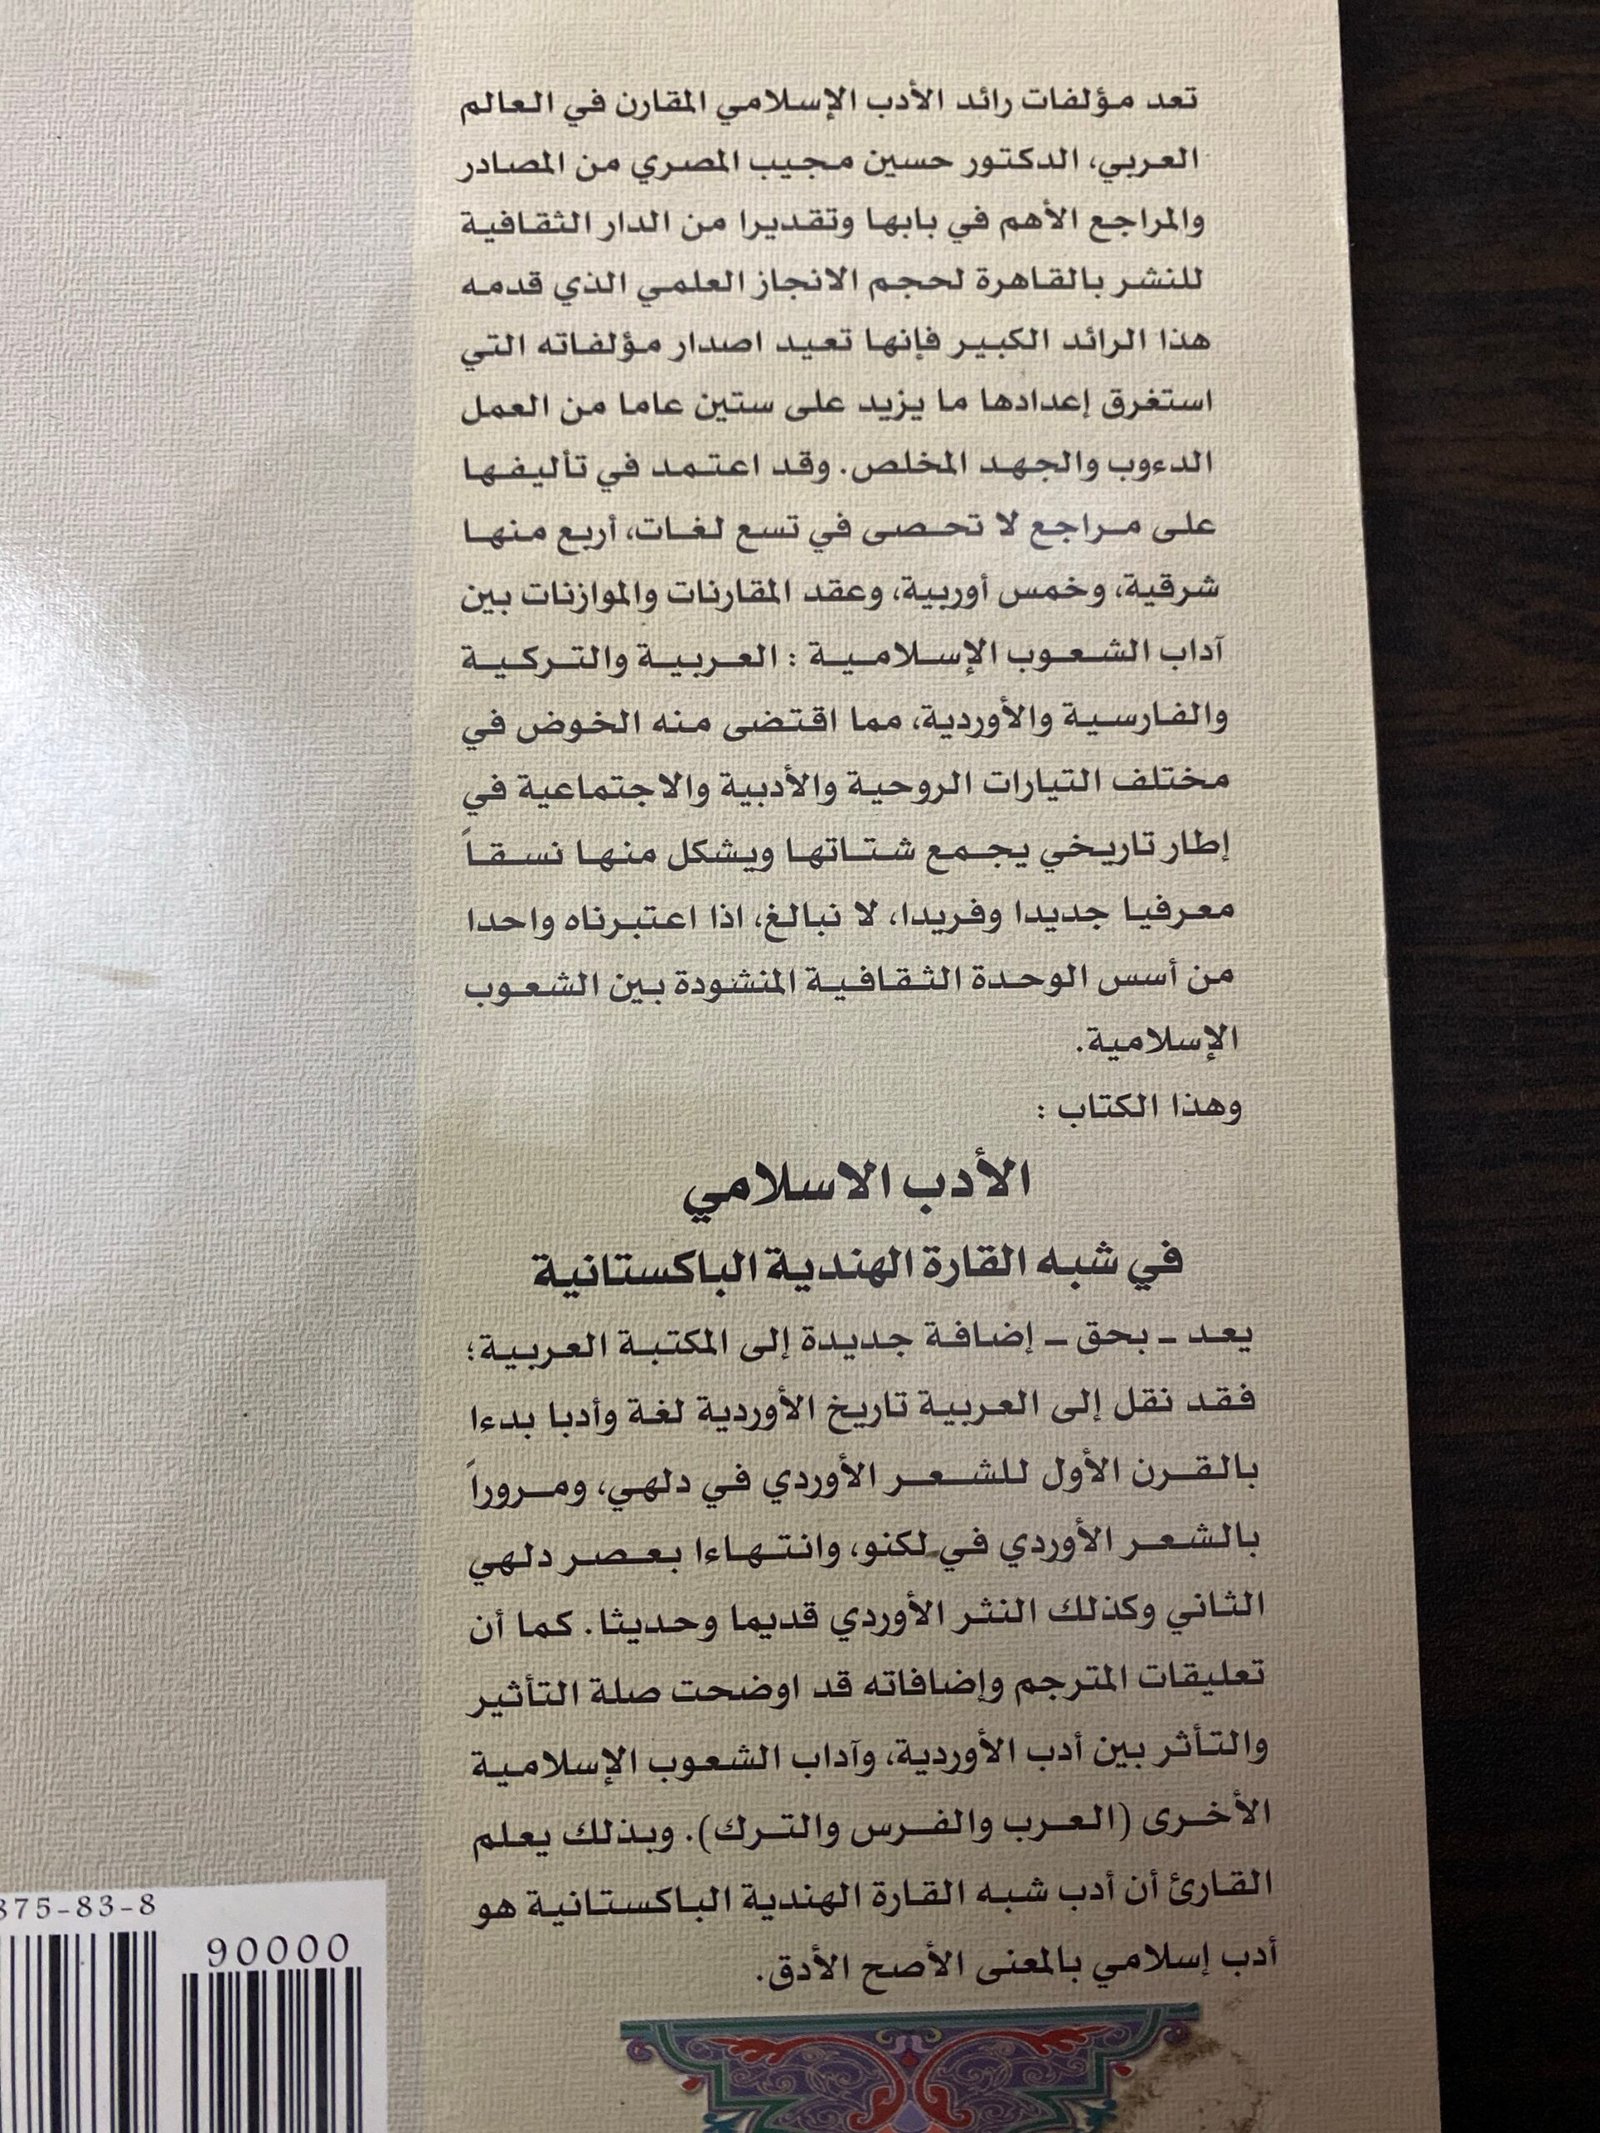 تعد مؤلفات رائد الأدب الإسلامي المقارن في العالم
العربي، الدكتور حسين مجيب المصري من المصادر
والمراجع الأهم في بابها وتقديرا من الدار الثقافية
للنشر بالقاهرة لحجم الانجاز العلمي الذي قدمه
هذا الرائد الكبير فإنها تعيد اصدار مؤلفاته التي
استغرق إعدادها ما يزيد على ستين عاما من العمل
الدءوب والجهد المخلص. وقد اعتمد في تأليفها
على مراجع لا تحصى في تسع لغات، أربع منها
شرقية، وخمس أوربية، وعقد المقارنات والموازنات بين
آداب الشعوب الإسلامية : العربية والتركية
والفارسية والأوردية، مما اقتضى منه الخوض في
مختلف التيارات الروحية والأدبية والاجتماعية في
إطار تاريخي يجمع شتاتها ويشكل منها نسقاً
معرفيا جديدا وفريدا، لا نبالغ، اذا اعتبرناه واحدا
من أسس الوحدة الثقافية المنشودة بين الشعوب
الإسلامية.
وهذا الكتاب :
الأدب الاسلامي
في شبه القارة الهندية الباكستانية
يعد - بحق - إضافة جديدة إلى المكتبة العربية؛
فقد نقل إلى العربية تاريخ الأوردية لغة وأدبا بدءا
بالقرن الأول للشعر الأوردي في دلهي، ومروراً
بالشعر الأوردي في لكنو، وانتهاءا بعصر دلهي
الثاني وكذلك النثر الأوردي قديما وحديثا. كما أن
تعليقات المترجم وإضافاته قد اوضحت صلة التأثير
والتأثر بين أدب الأوردية، وآداب الشعوب الإسلامية
الأخرى (العرب والفرس والترك). وبذلك يعلم
القارئ أن أدب شبه القارة الهندية الباكستانية هو
أدب إسلامي بالمعنى الأصح الأدق.
875-83-8
90000